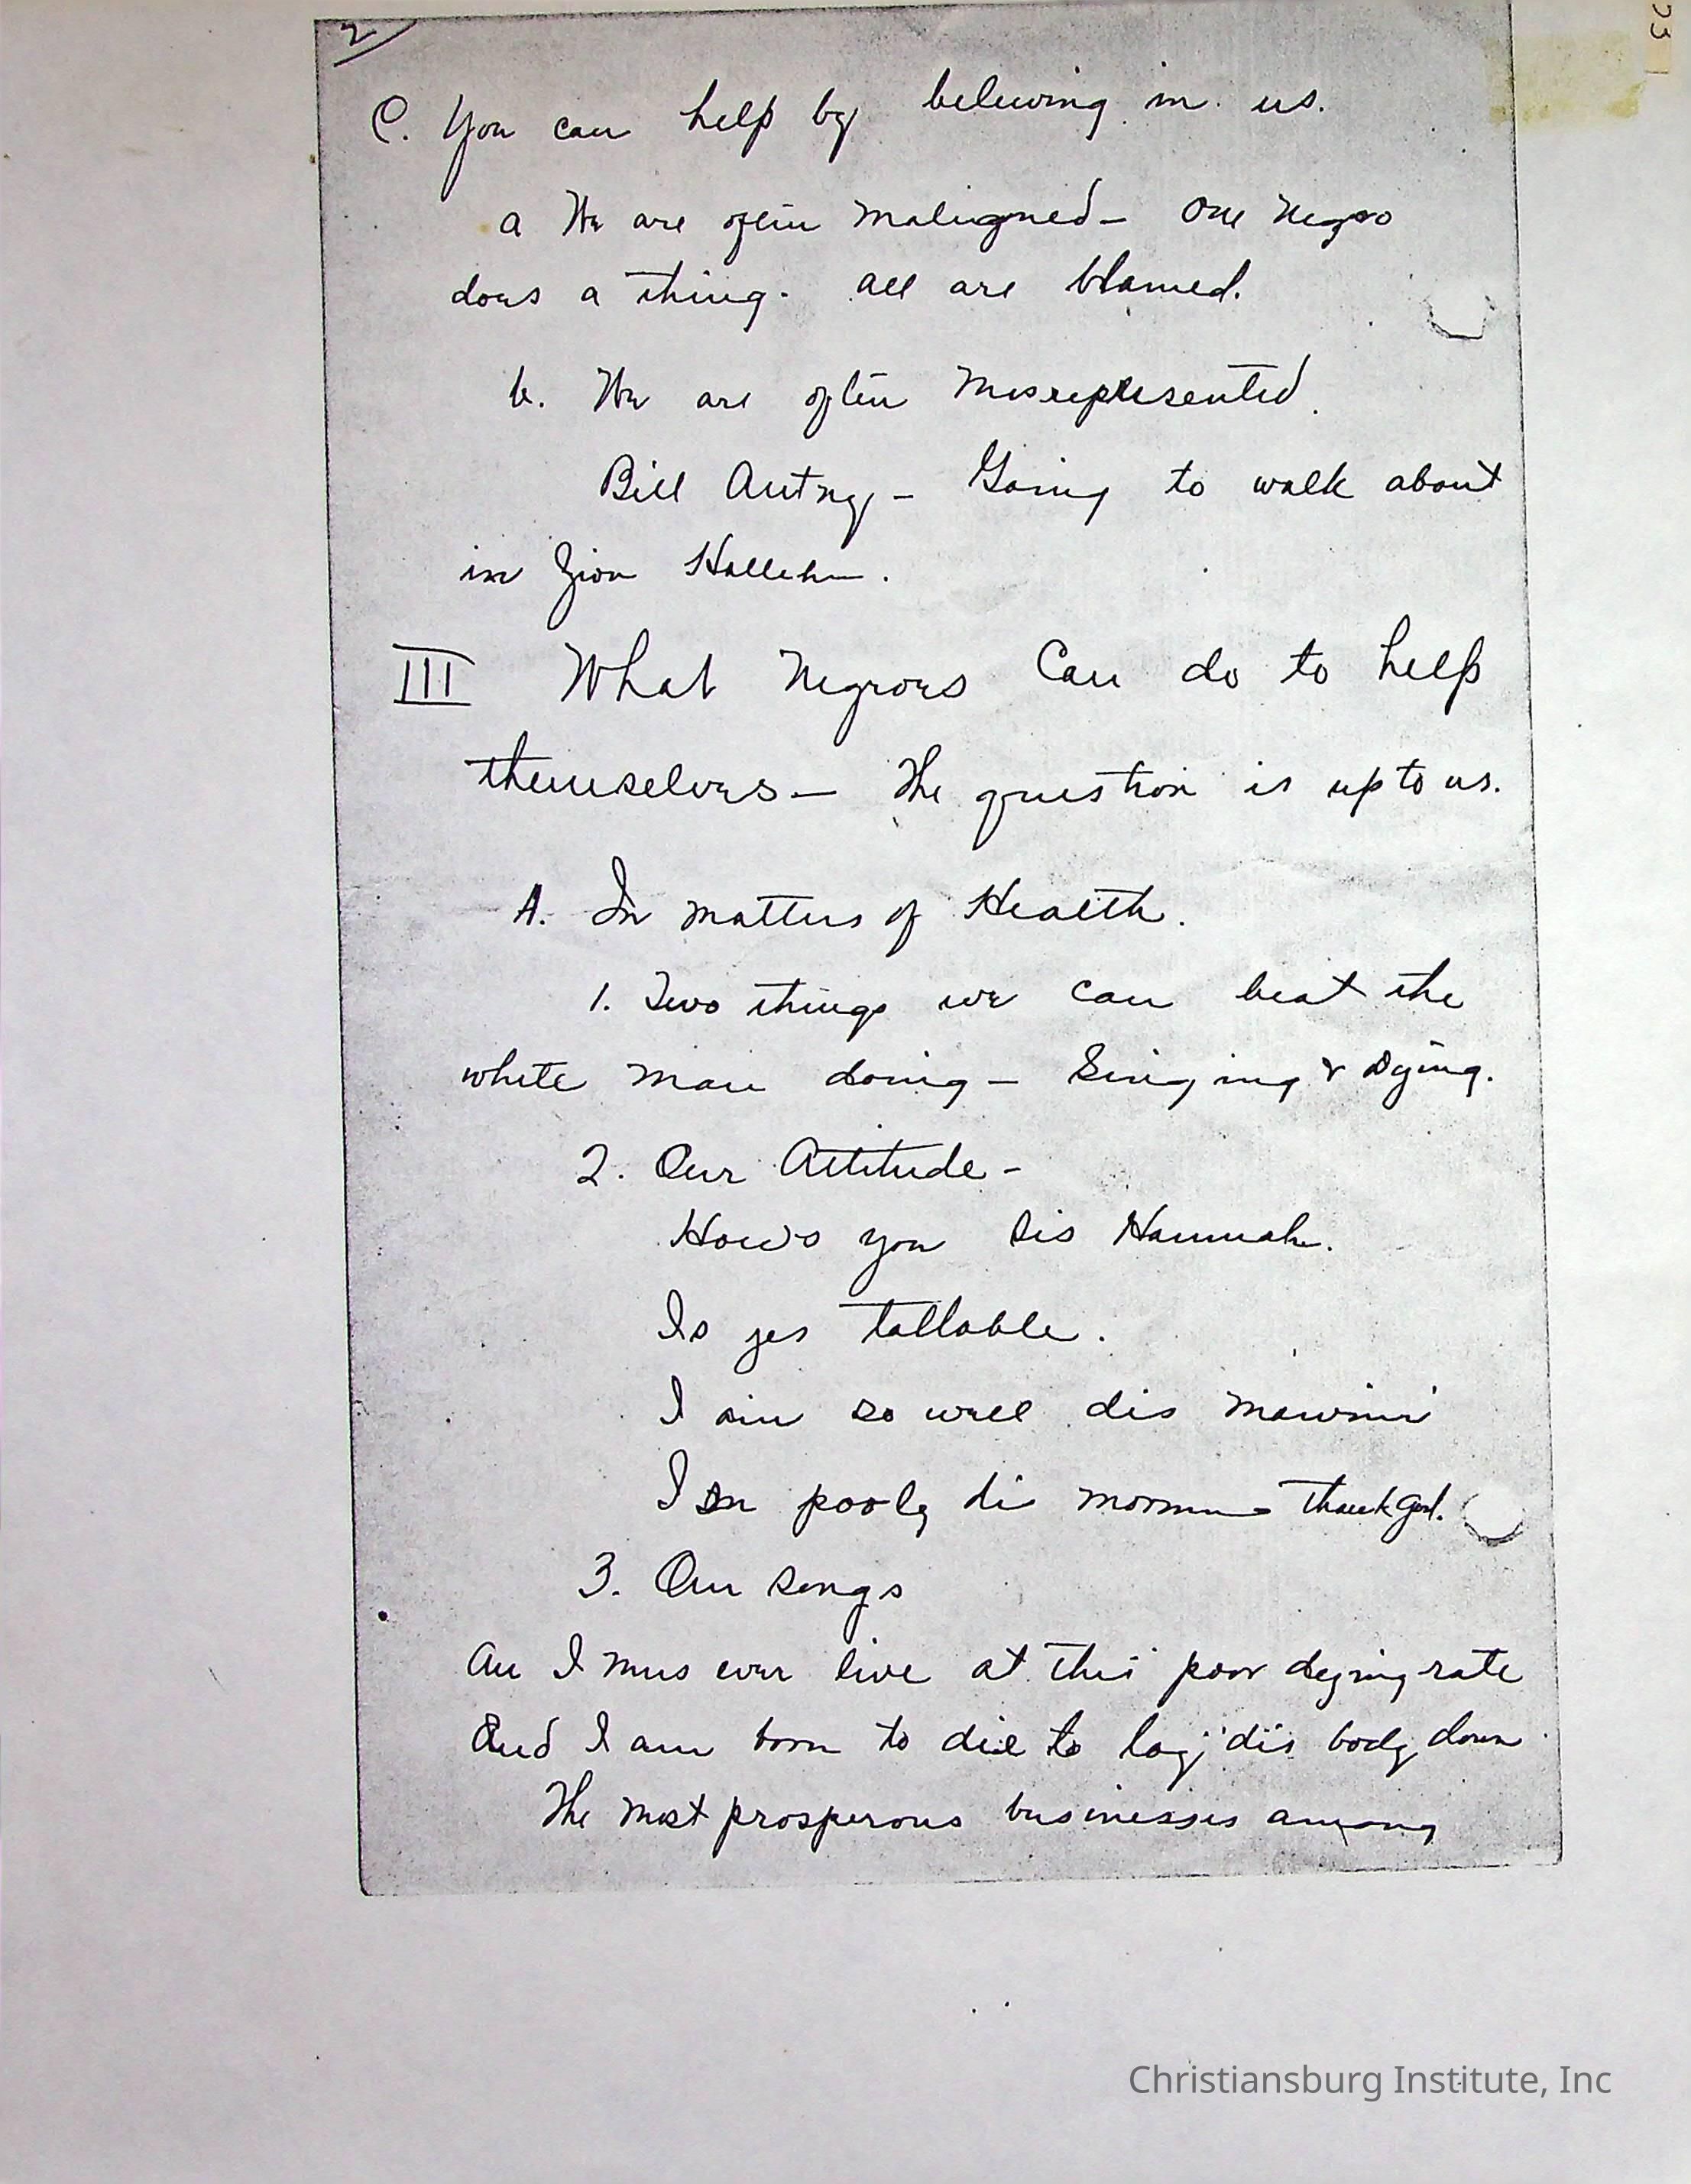 2
23
C. You can help by believing in us.
a We are often maligned – One Negro
does a thing. all are blamed.
b. We are often misrepresented.
Bill Autry – Going to walk about
in Zion Halleh.
III What Negroes Can do to help
themselves – The question is up to us.
A. In matters of Health.
1. Two things we can beat the
white man doing – Singing & Dying.
2. Our Attitude –
How's you Sis Hannah.
Is jes tollable.
I ain so well dis mawnin'
I on pooly di mornin thank God.
3. Our songs
An I mus ever live at this poor dying rate
And I am born to die to lay dis body down
The most prosperous businesses among
Christiansburg Institute, Inc